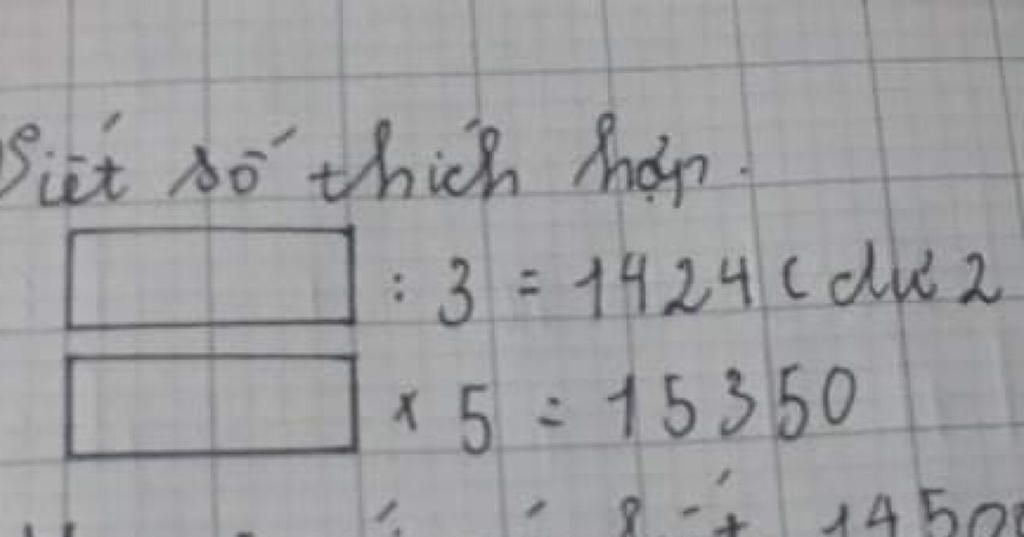 Viết số thích hợp.
: 3 = 1424 ( dư 2
x 5 = 15350
1450